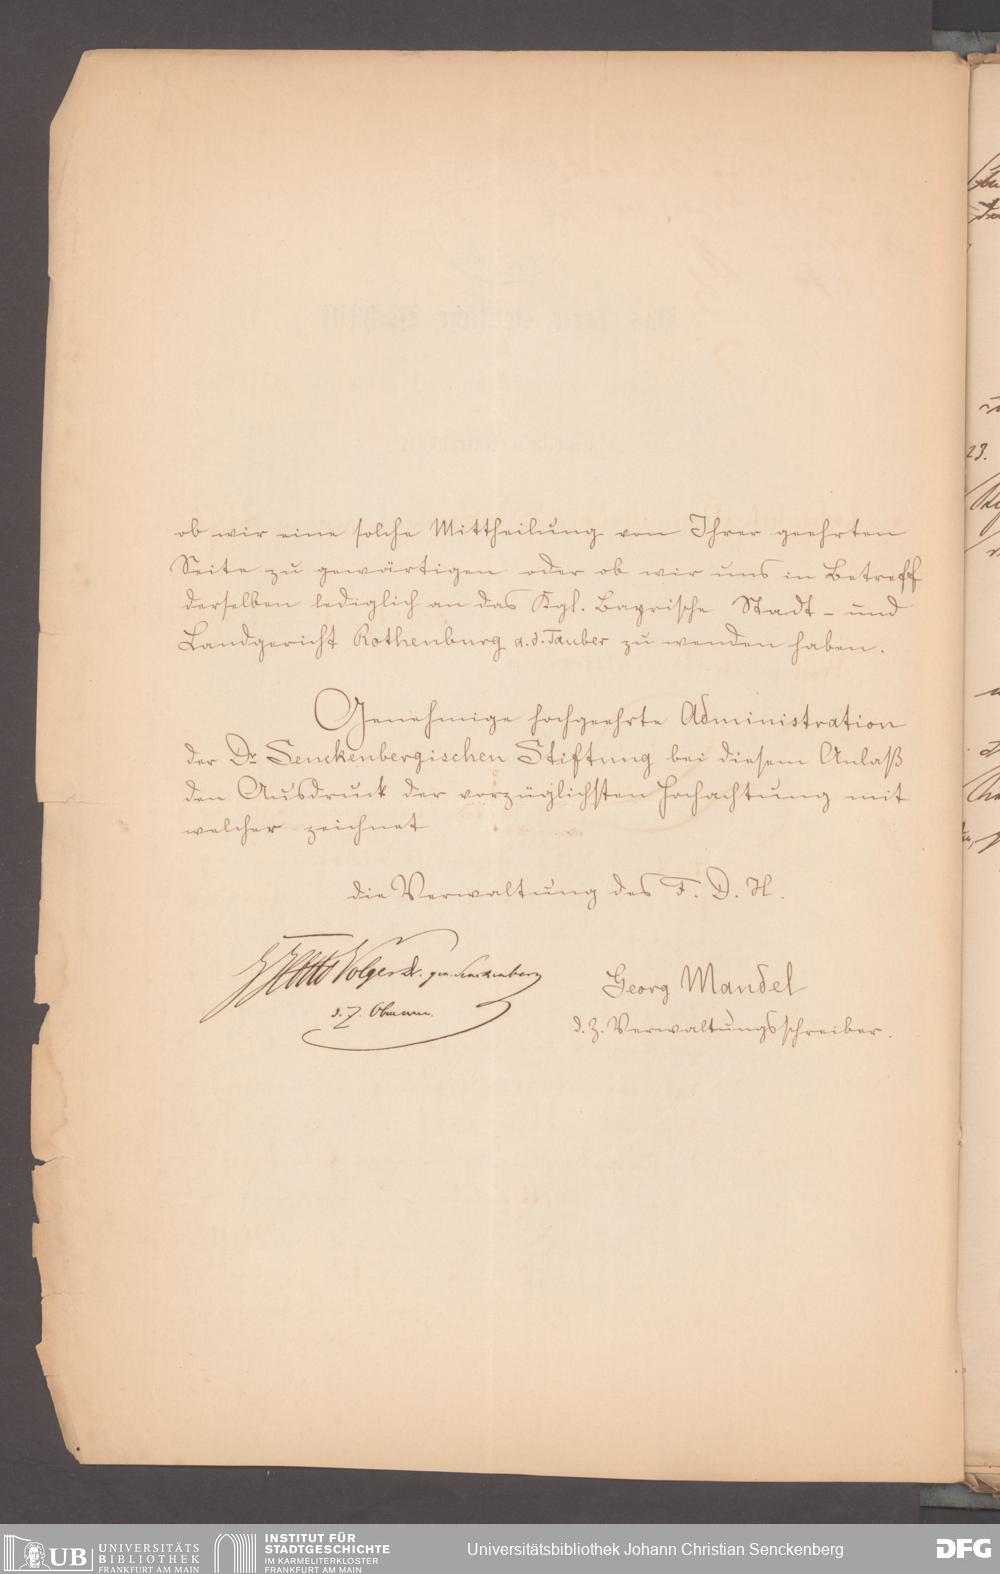 ob wir eine solche Mittheilung von Ihrer geehrten
Seite zu gewärtigen oder ob wir uns in Betreff
derselben lediglich an das Kgl. Bayrische Stadt- und
Landgericht Rothenburg a. d. Tauber zu wenden haben.
Genehmige hochgeehrte Administration
der Dr. Senckenbergischen Stiftung bei diesem Anlaß
den Ausdruck der vorzüglichsten Hochachtung mit
welcher zeichnet
die Verwaltung des F. D. H.
Otto Volger Dr. gen. Senckenberg
d. Z. Obmann.
Georg Mandel
d. Z. Verwaltungsschreiber.
23.
UB UNIVERSITÄTS
BIBLIOTHEK
FRANKFURT AM MAIN
INSTITUT FÜR
STADTGESCHICHTE
IM KARMELITERKLOSTER
FRANKFURT AM MAIN
Universitätsbibliothek Johann Christian Senckenberg
DFG